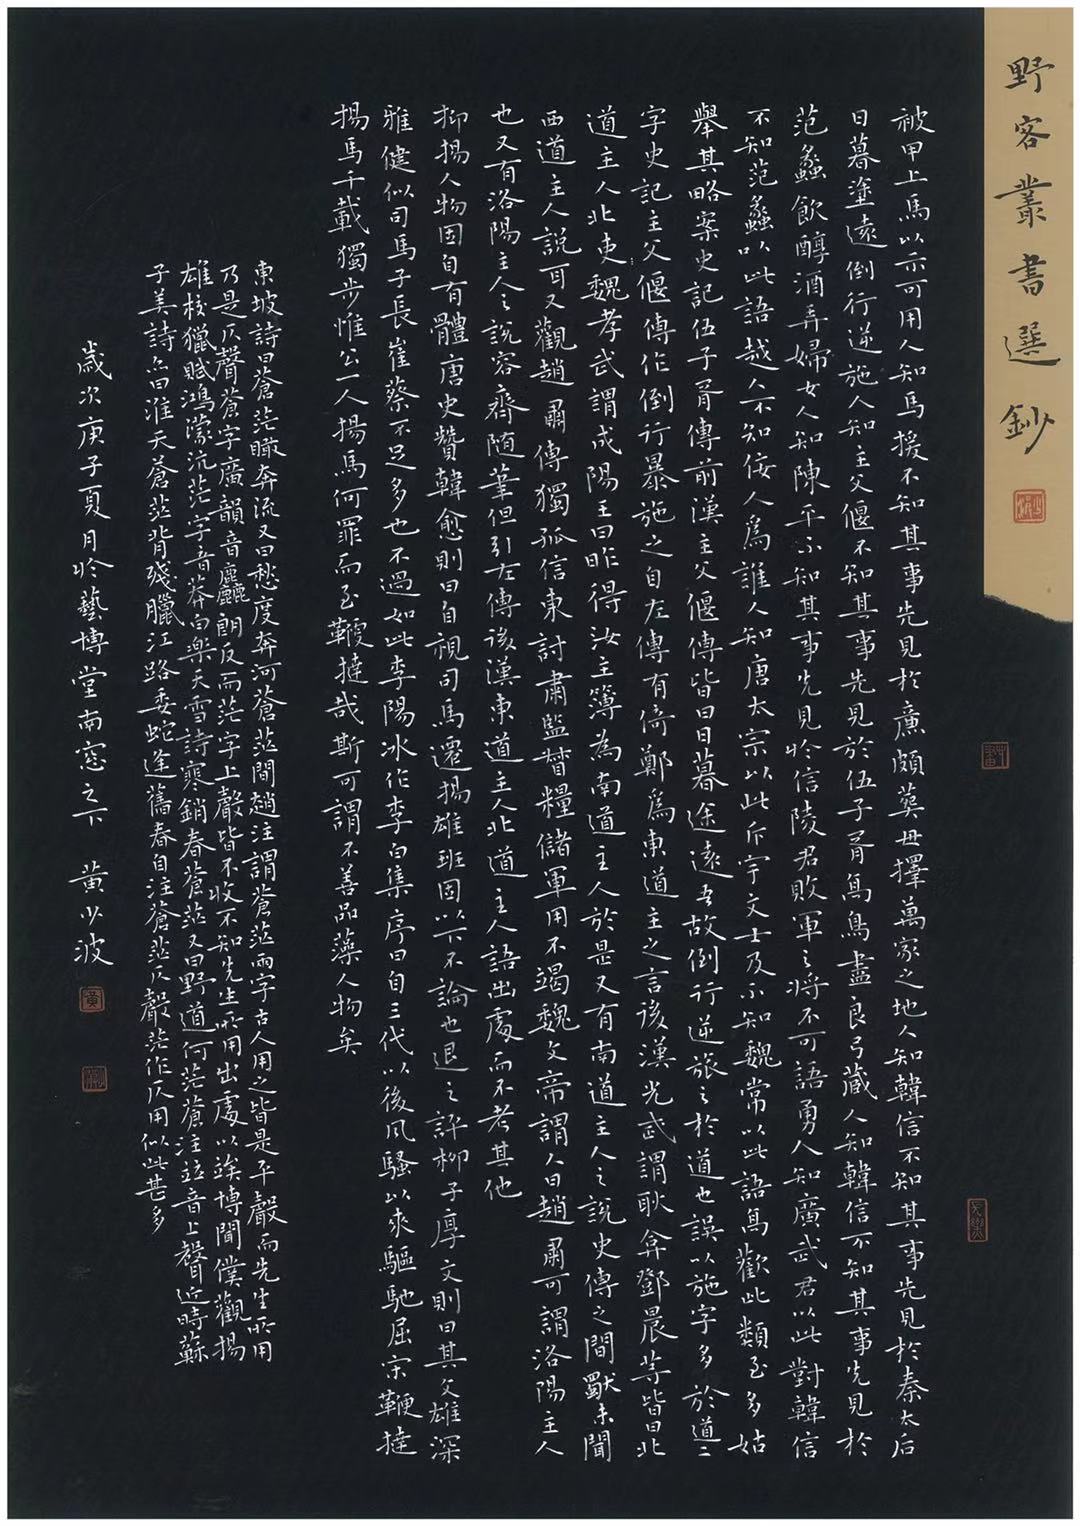 野客叢書選鈔
被甲上馬以示可用人知馬援不知其事先見於廉頗葬母擇萬家之地人知韓信不知其事先見於秦太后
日暮塗遠倒行逆施人知主父偃不知其事先見於伍子胥鳥盡良弓藏人知韓信不知其事先見於
范蠡飲醇酒弄婦女人知陳平不知其事先見於信陵君敗軍之將不可語勇人知廣武君以此對韓信
不知范蠡以此語越人不知佞人為誰人知唐太宗以此斥宇文士及不知魏常以此語高歡此類至多姑
舉其略案史記伍子胥傳前漢主父偃傳皆曰日暮途遠吾故倒行逆旅之於道也誤以施字多於道二
字史記主父偃傳作倒行暴施之自左傳有倚鄭為東道主之言後漢光武謂耿弇鄧晨等皆曰北
道主人北史魏孝武謂成陽王曰昨得汝主簿為南道主人於是又有南道主人之說史傳之間獸未聞
西道主人說耳又觀趙肅傳獨孤信東討肅監督糧儲軍用不竭魏文帝謂人曰趙肅可謂洛陽主人
也又有洛陽主人之說容齊隨筆但引左傳後漢東道主人北道主人語出處而不考其他
抑揚人物固自有體唐史贊韓愈則曰自視司馬遷揚雄班固以下不論也退之評柳子厚文則曰其文雄深
雅健似司馬子長崔蔡不足多也不過如此李陽冰作李白集序曰自三代以後風騷以來驅馳屈宋鞭撻
揚馬千載獨步惟公一人揚馬何罪而至鞭撻哉斯可謂不善品藻人物矣
東坡詩曰蒼茫瞰奔流又曰愁度奔河蒼茫間趙注謂蒼茫兩字古人用之皆是平聲而先生所用
乃是仄聲蒼字廣韻音麤朗反而茫字上聲皆不收不知先生所用出處以俟博聞僕觀揚
雄校獵賦鴻濛沆茫字音莽白樂天雪詩寒銷春蒼茫又曰野道何茫蒼注並音上聲近時蘇
子美詩亦曰淮天蒼茫背殘臘江路委蛇逢舊春自注蒼茫仄聲茫作仄用似此甚多
歲次庚子夏月於藝博堂南窓之下 黃少波